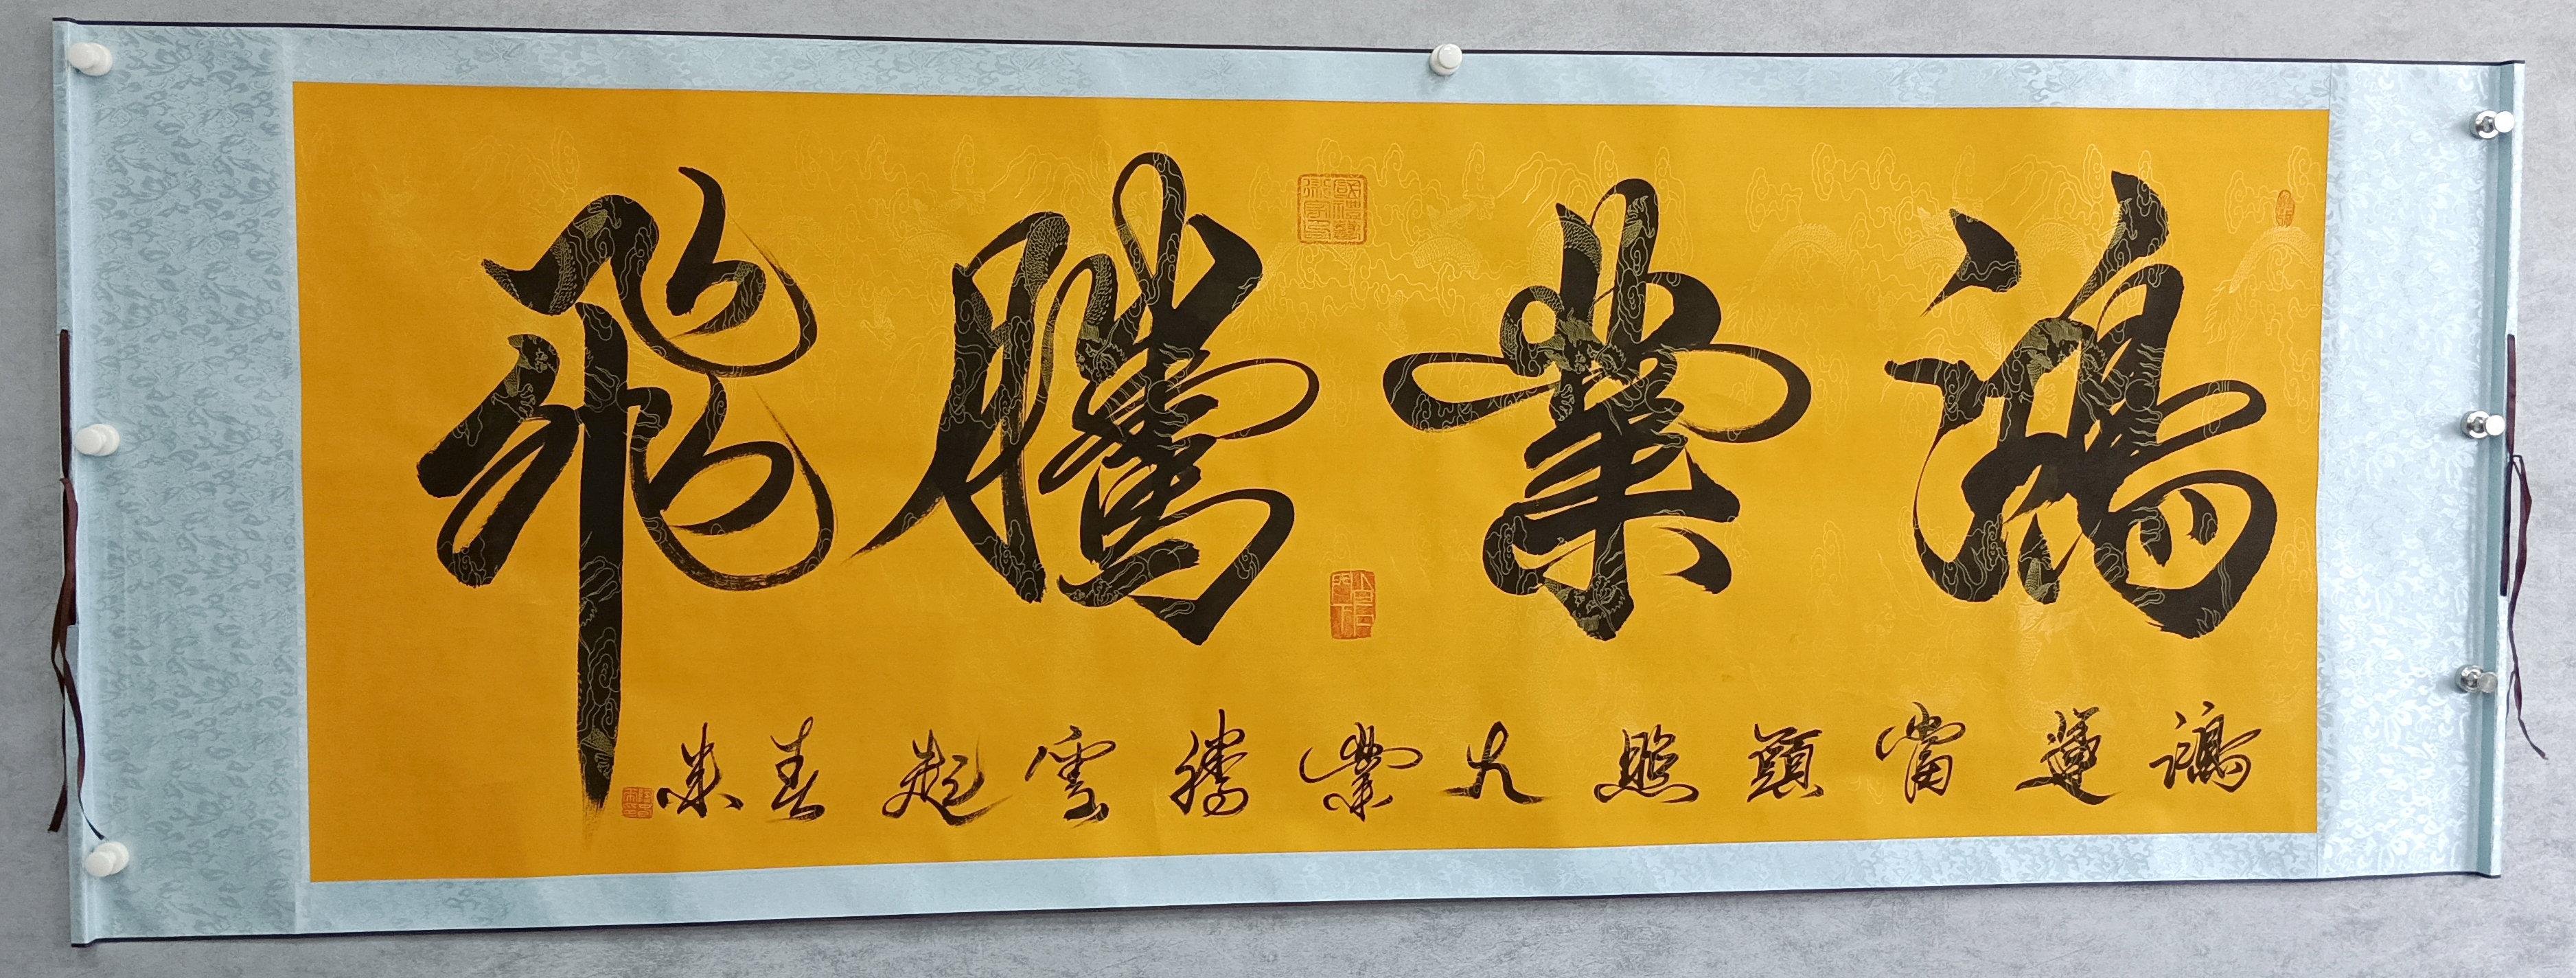 鴻業騰飛
鴻運當頭照大業騰雲起春